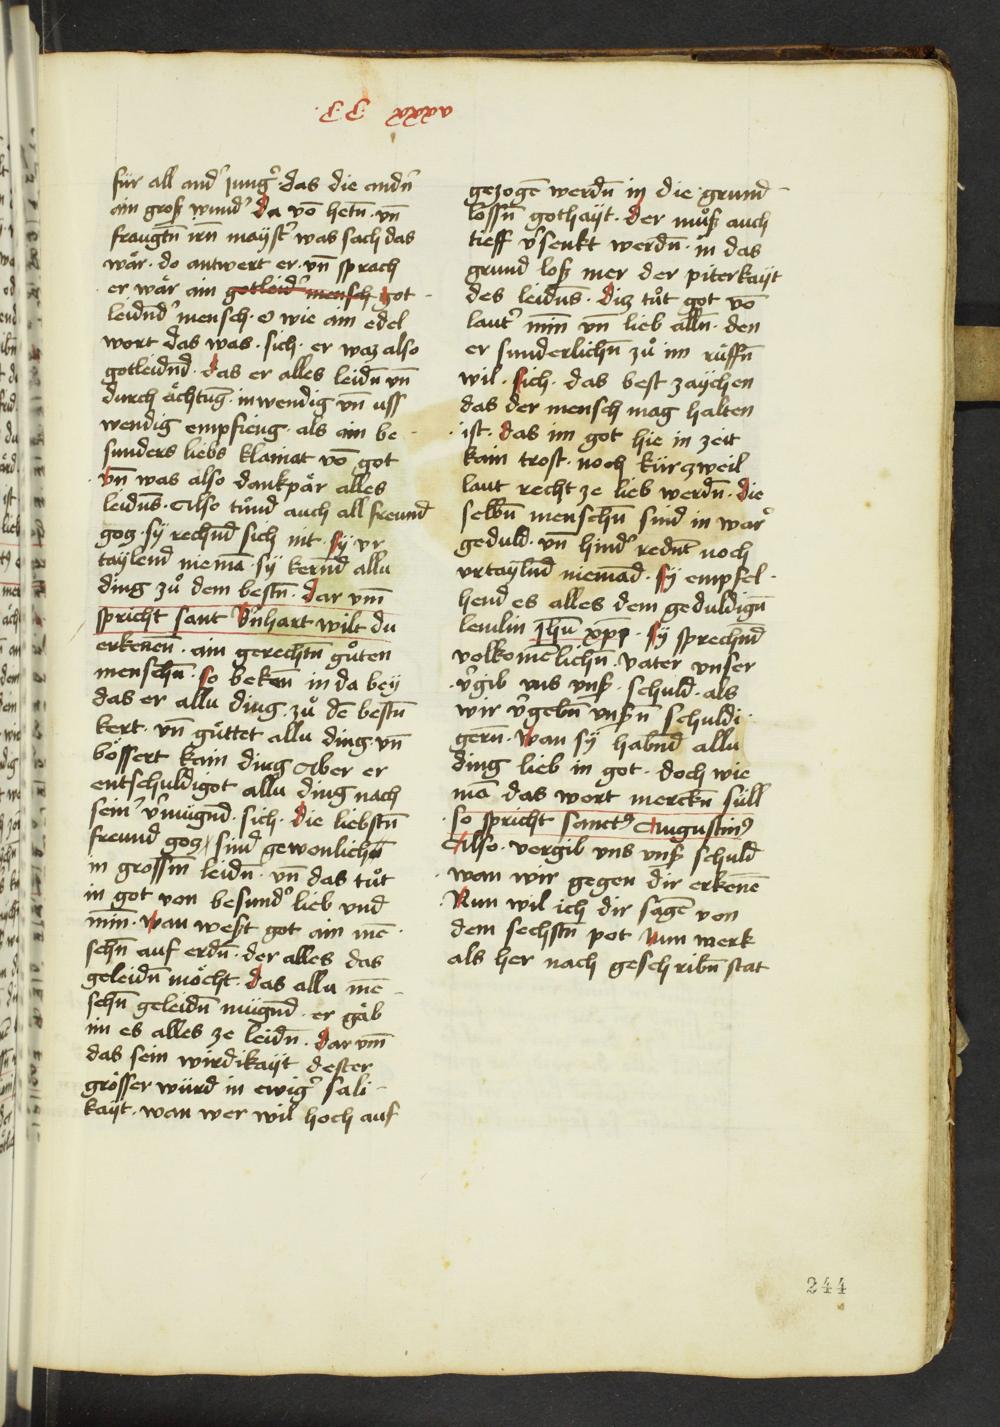 ·CC xxxv
für all andˀ jungˀ das die andn̄
ain groß wundˀ da vō hetn̄ · vn̄
fraugtn̄ irn̄ maystˀ was sach das
wär · do antwert er · vn̄ sprach
er wär ain gotleidˀ mensch got
leidndˀ mensch · O wie ain edel
wort das was · sich · er waz also
gotleidnd̄ · das er alles leidn̄ vn̄
durch ächtunḡ · inwendig vn̄ uss
wendig empfieng · als ain be
sunders liebs klainat vō got
vn̄ was also dankpär alles
leidns̄ · Also tůnd auch all freund
goz · sÿ rechnd̄ sich nit · sÿ vr
taylend niemā · sÿ kernd̄ allu
ding zů dem bestn̄ · dar vm̄
spricht sant B̄nhart wilt du
erkenen̄ · ain gerechtn̄ gůten
menschn̄ · so beken in da bey
das er allu ding · zů dē bestn̄
kert · vn̄ güttet allu ding · vn̄
bössert kain ding Aber er
entschuldigot allu ding nach
seinˀ v̓mügnd̄ · sich · die liebstn̄
freund goz / sind gewonlichn̄
in grossm̄ leidn̄ · vn̄ das tůt
in got von besundˀ lieb vnd
min̄ · wan west got ain mē
schn̄ auf erdn̄ · der alles das
geleidn̄ möcht · das allu mē
schn̄ geleidn̄ mügnd̄ · er gäb
im es alles ze leidn̄ · dar vm̄
das sein wirdikayt dester
grösser würd in ewigˀ säli
kayt · wan wer wil hoch auf
gezogē werdn̄ in die grund
lossn̄ gothayt · der můß auch
tieff v̓senkt werdn̄ · in das
grund loß mer der piterkayt
des leidns̄ · diz tůt got vō
lautˀ min̄ vn̄ lieb alln̄ · den
er sunderlichn̄ zů im rüffn̄
wil · sich · das best zaychen
das der mensch mag halten
ist · das im got hie in zeit
kain trost · noch kürzweil
laut recht ze lieb werdn̄ · die
selbn̄ menschn̄ sind in warˀ
geduld · vn̄ hindˀ rednt̄ noch
vrtaylnd̄ niemad̄ · sÿ empfel
hend es alles dem geduldign̄
lemlin jhū xp̄o · sÿ sprechnd̄
volkomēlichn̄ · vater vnser
v̓gib vns vnß · schuld · als
wir v̓gebn̄ vnßn̄ schuldi
gern̄ · wan sÿ habnd̄ allu
ding lieb in got · doch wie
mā das wort merckn̄ süll
so spricht sanctꝰ Augustinꝰ
Also · vergib vns vnß schuld
wan wir gegen dir erkenē
Nun wil ich dir sagē von
dem sechstn̄ pot nun merk
als her nach geschribn̄ stat
244